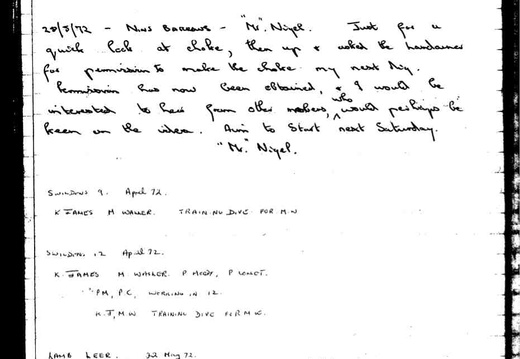 28/5/72 - Nine Barrows - "Mr." Nigel. Just for a
quick look at choke, then up & asked the Landowner
for permission to make the choke my next dig.
Permission has now been obtained, & I would be
interested to hear from other members, who would perhaps be
keen on the idea. Aim to start next Saturday.
"Mr." Nigel.
SWILDONS 9. April 72.
K JAMES M WALLER. TRAINING DIVE FOR M.W
SWILDONS 12 April 72.
K. JAMES M WALLER. P MOODY, P
P.M, P.C, WORKING IN 12.
K.J, M.W TRAINING DIVE FOR M.W.
LAMB LEER. 22 May 72.